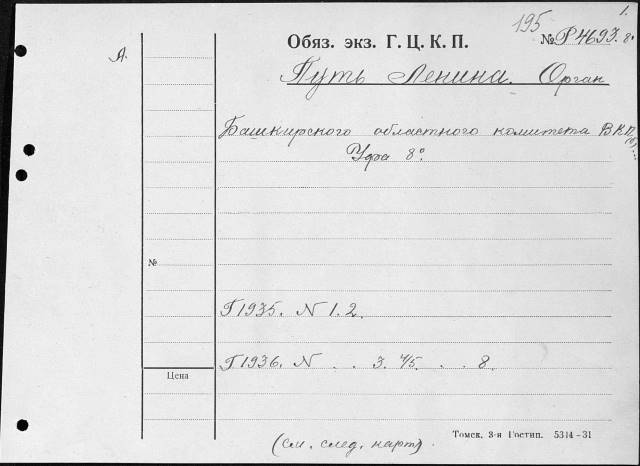 1.
195
А.
Обяз. экз. Г. Ц. К. П. № Р4693. 8°
Путь Ленина. Орган
Башкирского областного комитета ВКП(б).
Уфа 8°
№
Г1935. N 1. 2.
Г1936. N . . 3. 4/5. . . 8.
Цена
Томск, 3-я Гостип. 5314-31
(см. след. карт).